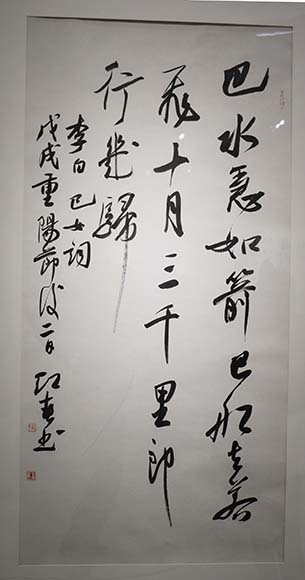 巴水急如箭巴船去若
飛十月三千里郎
行幾歸
李白巴女詞
戊戌重陽節後二日